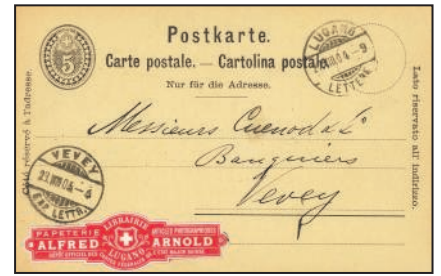 Postkarte.
5
Carte postale. — Cartolina postale.
Nur für die Adresse.
LUGANO
LETTERE
Côté réservé à l'adresse.
Lato riservato all' indirizzo.
Messieurs Cuenod & Cⁱᵉ
Banquiers
Vevey
VEVEY
EXP. LETTR.
PAPETERIE
LIBRAIRIE
ALFRED
ARNOLD
LUGANO